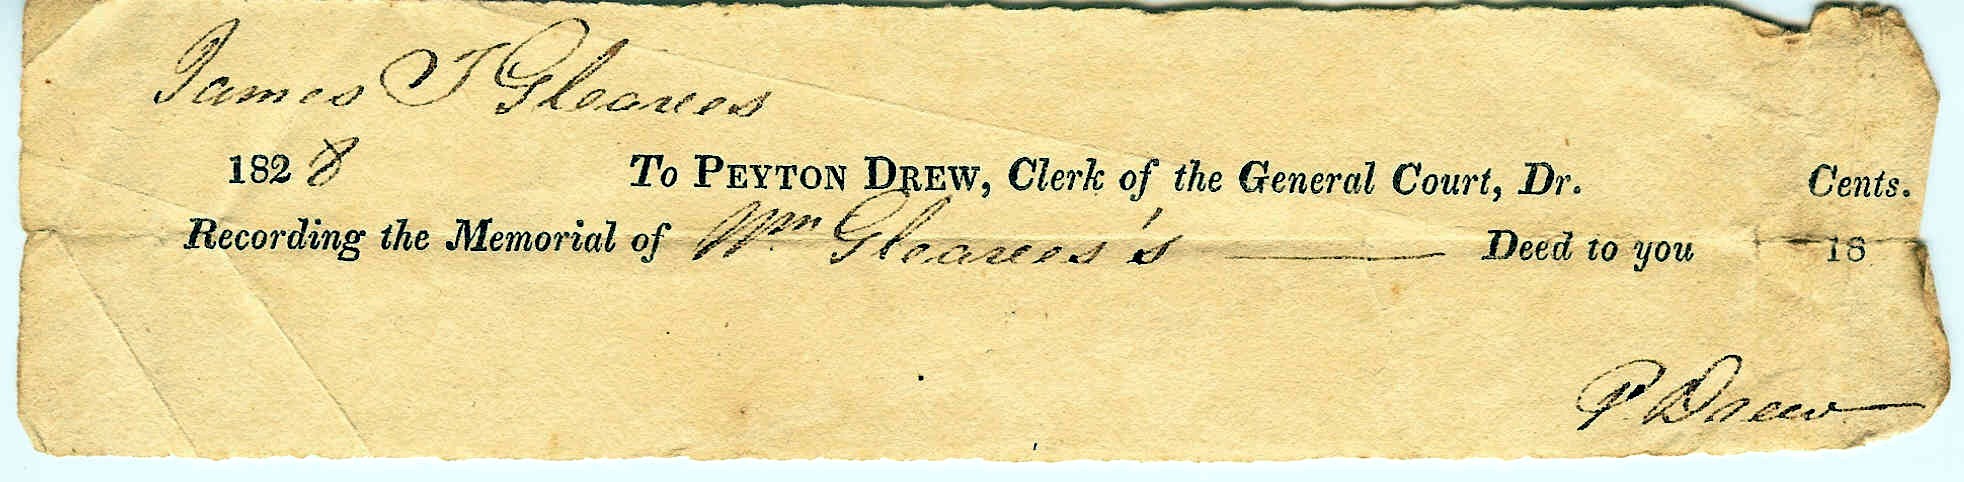 James T Gleaves
1828 To PEYTON DREW, Clerk of the General Court, Dr. Cents.
Recording the Memorial of Wm Gleaves's Deed to you 18
P. Drew